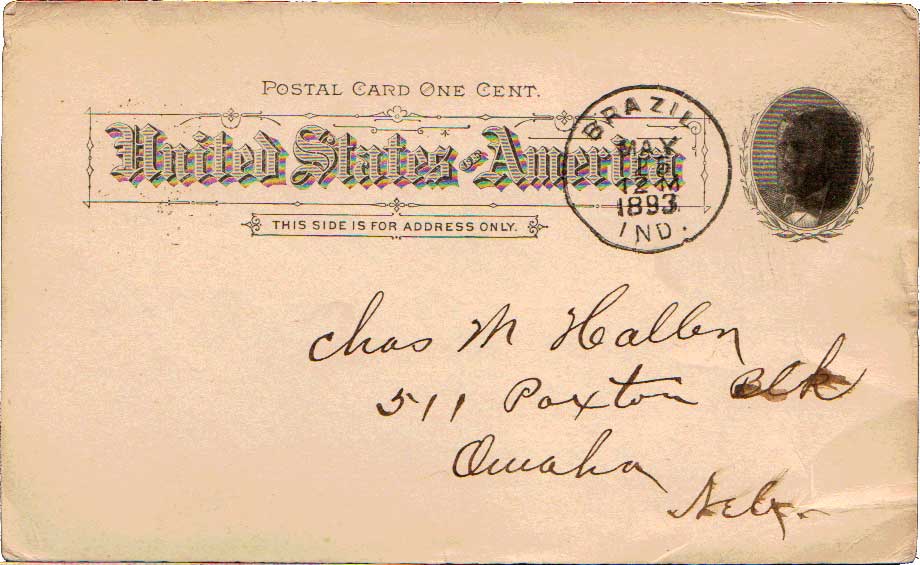 POSTAL CARD ONE CENT.
United States of America
THIS SIDE IS FOR ADDRESS ONLY.
BRAZIL
MAY
12 M
1893
IND.
Chas M Hallen
511 Paxton Blk
Omaha
Neb.